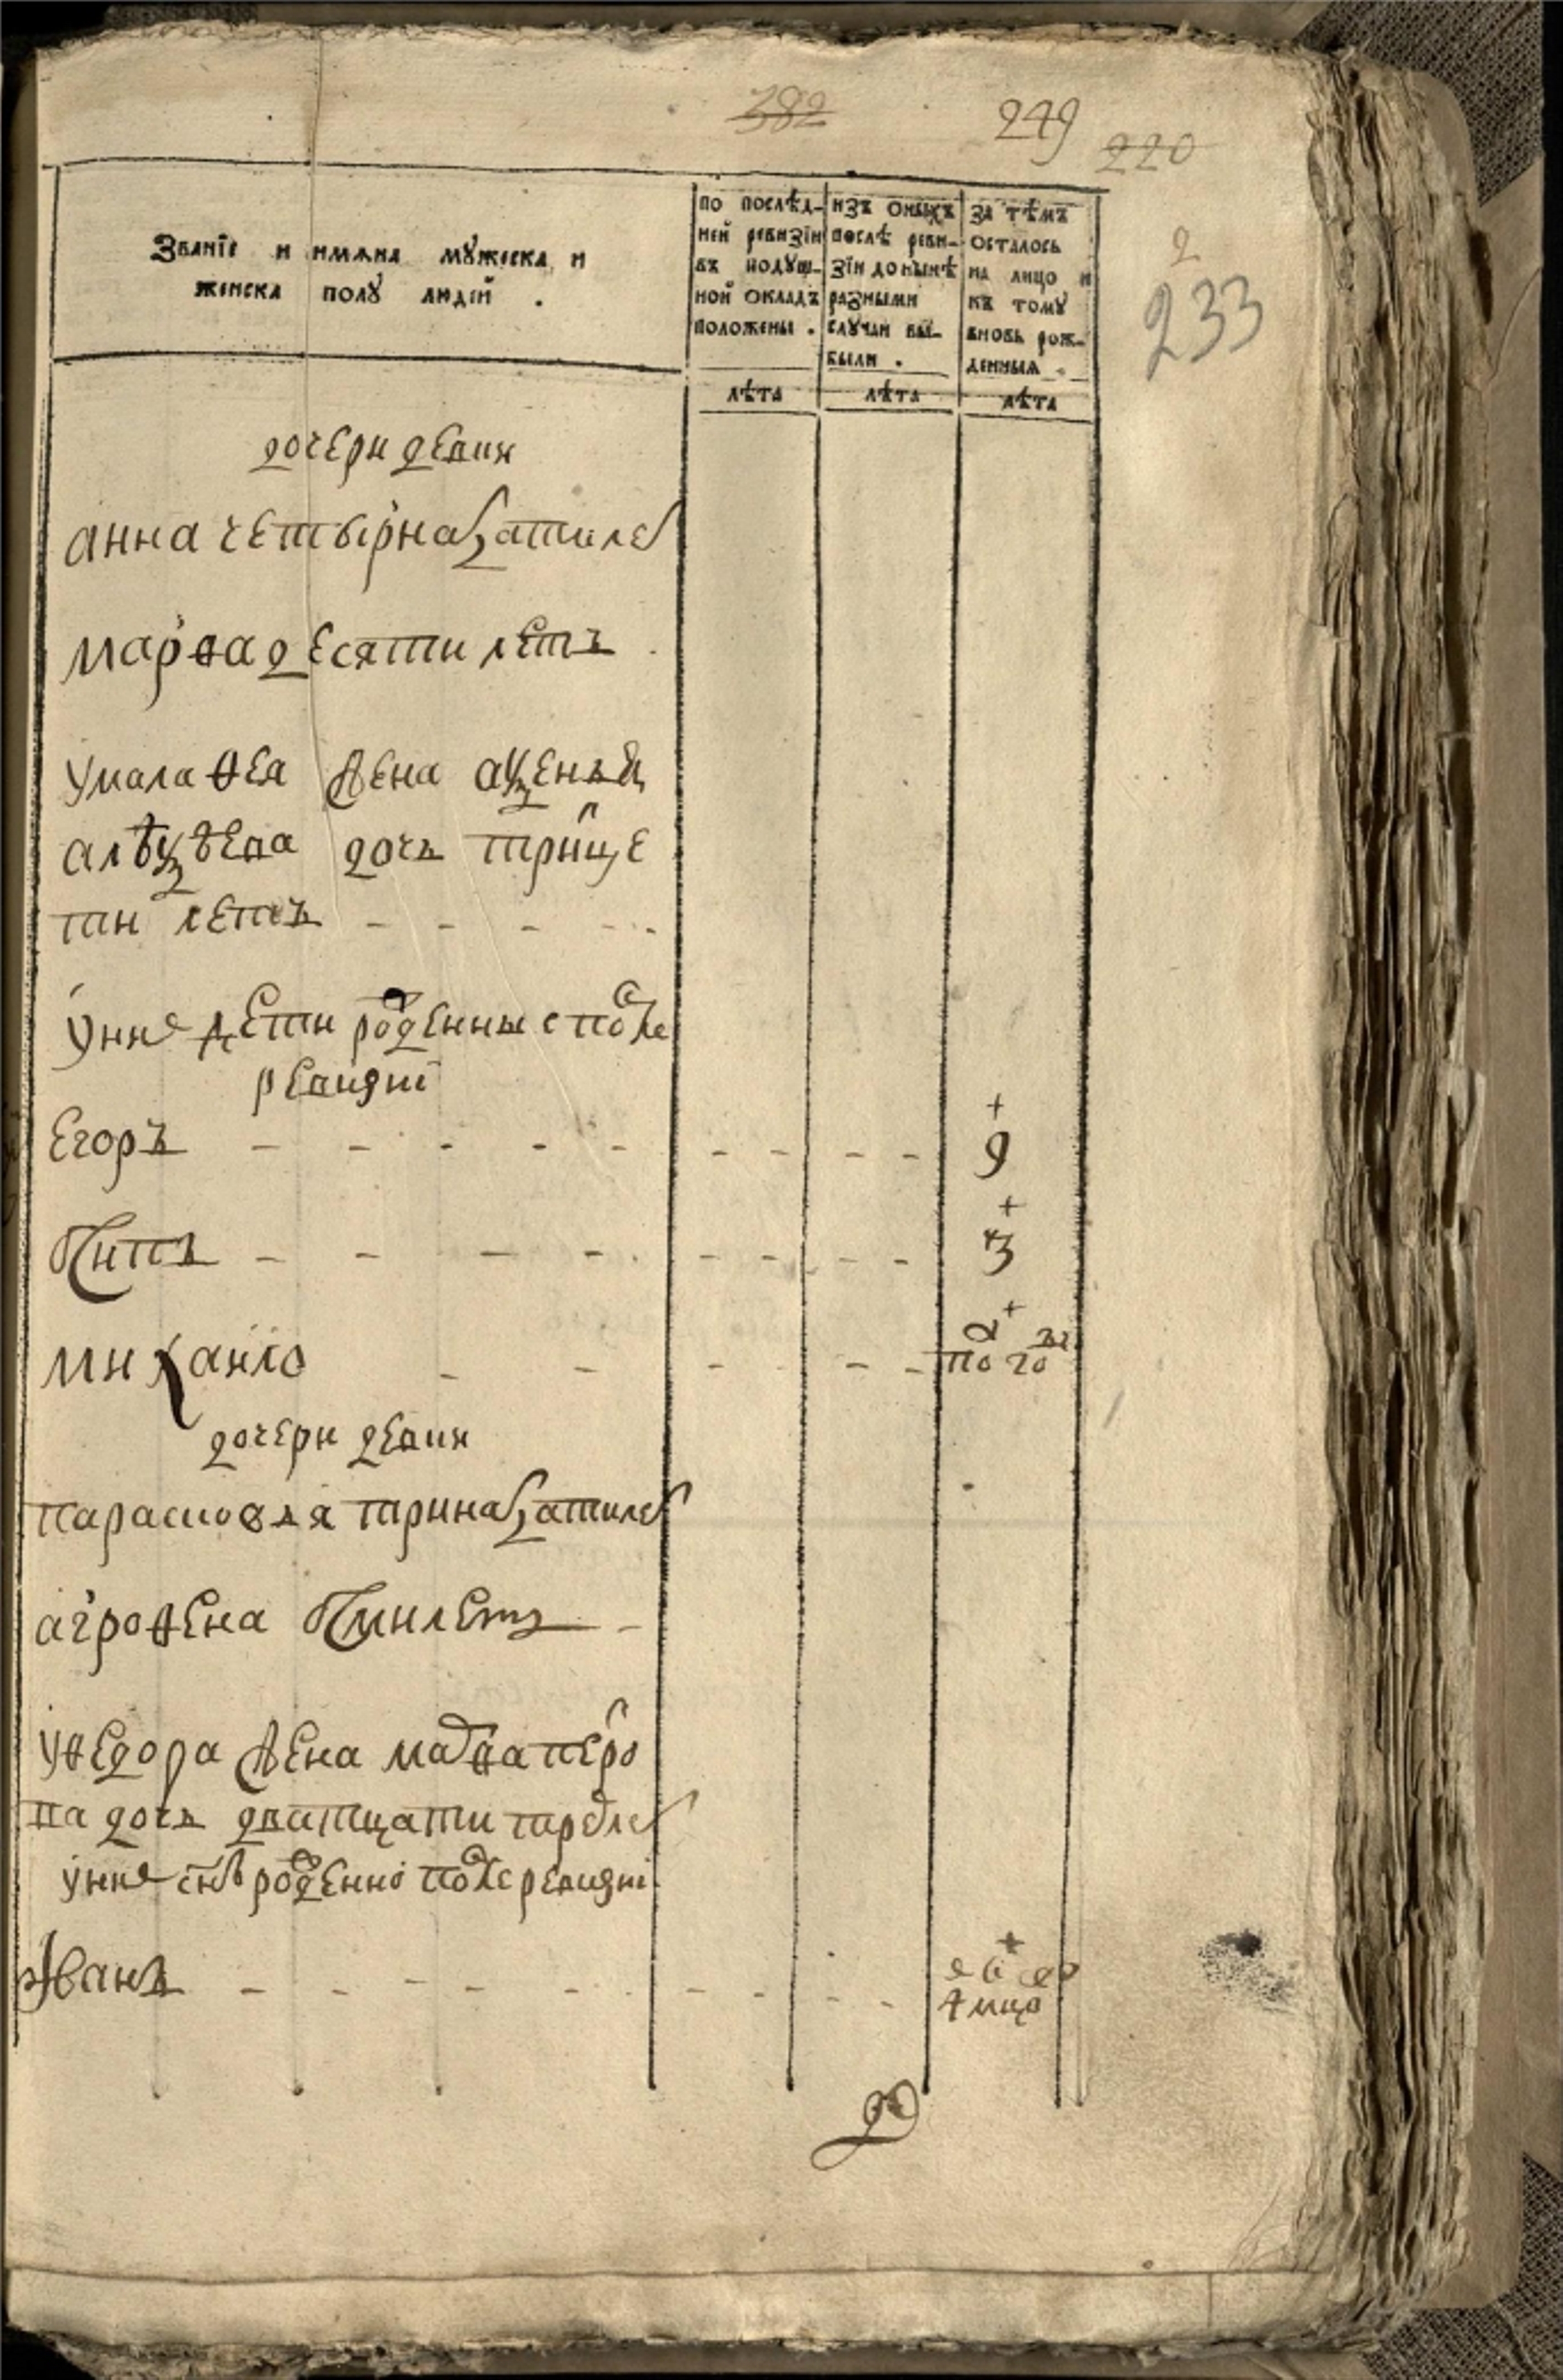 382 249 220
2
233
Званїе и имѧна мꙋжеска и
женска полꙋ людей .
по послѣд-
ней ревизїи
въ подꙋш-
ной окладъ
положены .
изъ оныхъ
послѣ реви-
зїи донынѣ
разными
слꙋчаи вы-
были .
за тѣмъ
осталось
на лицо и
къ томꙋ
вновь рож-
денныя .
лѣта лѣта лѣта
дочери девки
анна четырнадцати лет
марѳа десяти летъ
дочь трицe
ти летъ
унее дети рожденные после
ревизиі
Егоръ 9
Титъ 3
михаило 2 по го
дочери девки
парасковья тринатцати лет
агроѳена лет
уѳедора жена петро
ва дочь дватцати трех лет
унее снъ рожденно после ревизиі
Иванъ
4 мцо